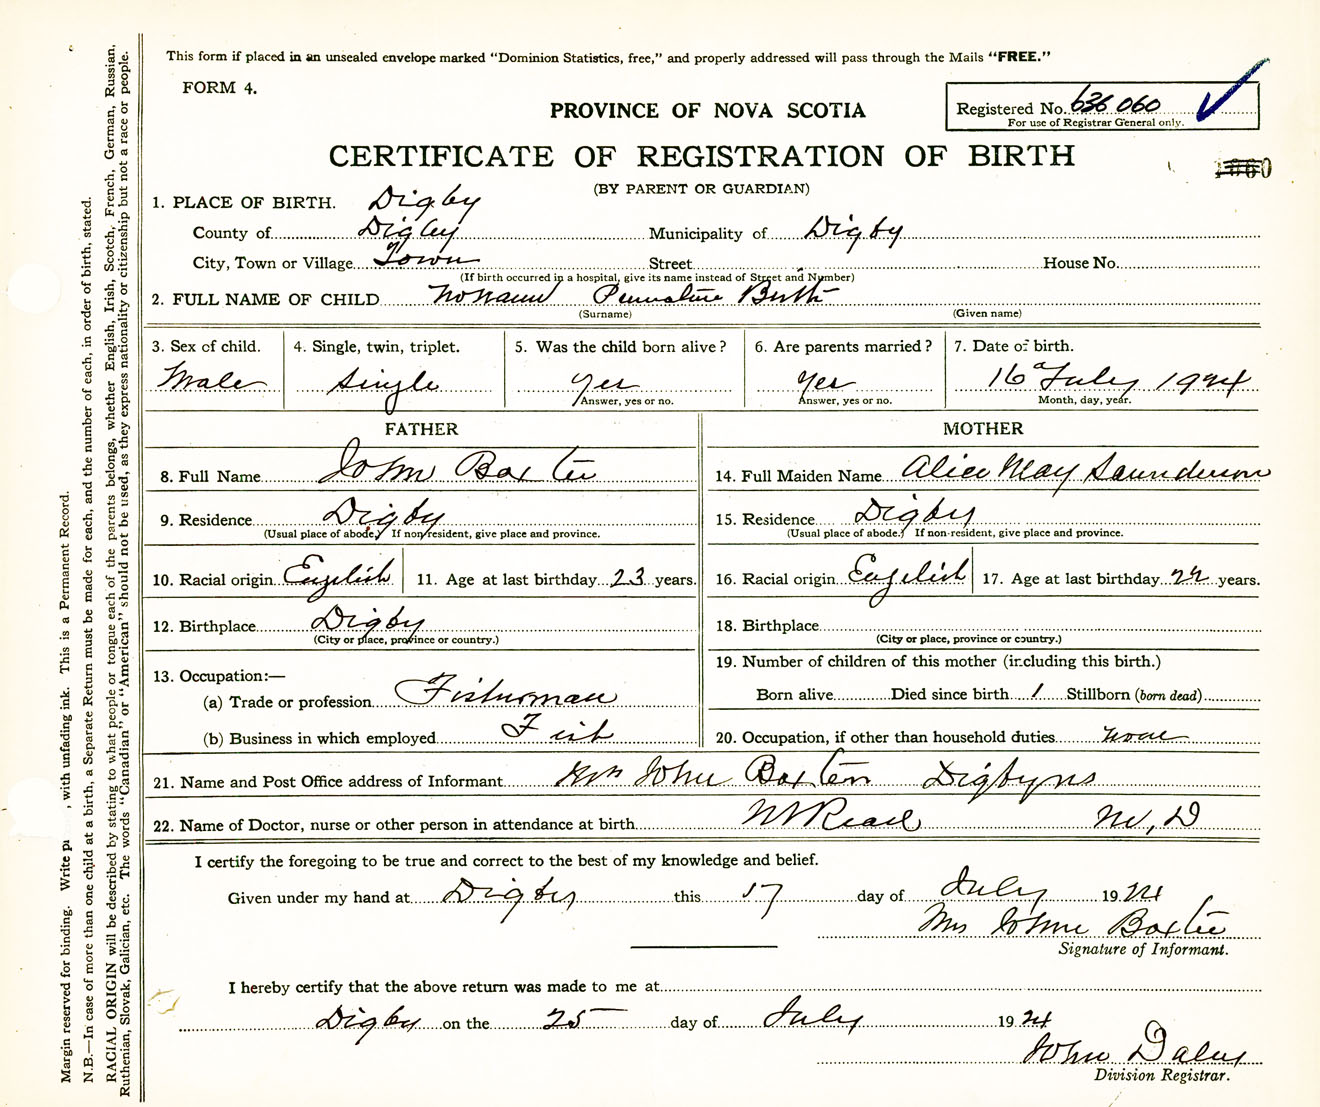 This form if placed in an unsealed envelope marked "Dominion Statistics, free," and properly addressed will pass through the Mails "FREE."
FORM 4.
PROVINCE OF NOVA SCOTIA
Registered No. 636 060
For use of Registrar General only.
CERTIFICATE OF REGISTRATION OF BIRTH
(BY PARENT OR GUARDIAN)
1. PLACE OF BIRTH. Digby
County of Digby Municipality of Digby
City, Town or Village Town Street House No.
(If birth occurred in a hospital, give its name instead of Street and Number)
2. FULL NAME OF CHILD No Name Premature Birth
(Surname) (Given name)
3. Sex of child. 4. Single, twin, triplet. 5. Was the child born alive? 6. Are parents married? 7. Date of birth.
Male Single Yes Yes 16 July 1924
Answer, yes or no. Answer, yes or no. Month, day, year.
FATHER MOTHER
8. Full Name John Baxter 14. Full Maiden Name Alice May Saunderson
9. Residence Digby 15. Residence Digby
(Usual place of abode.) If non-resident, give place and province. (Usual place of abode.) If non-resident, give place and province.
10. Racial origin English 11. Age at last birthday 23 years. 16. Racial origin English 17. Age at last birthday 22 years.
12. Birthplace Digby 18. Birthplace
(City or place, province or country.) (City or place, province or country.)
13. Occupation:— 19. Number of children of this mother (including this birth.)
(a) Trade or profession Fisherman Born alive Died since birth 1 Stillborn (born dead)
(b) Business in which employed Fish 20. Occupation, if other than household duties none
21. Name and Post Office address of Informant Mrs John Baxter Digby NS
22. Name of Doctor, nurse or other person in attendance at birth M.D
I certify the foregoing to be true and correct to the best of my knowledge and belief.
Given under my hand at Digby this 17 day of July 1924
Mrs John Baxter
Signature of Informant.
I hereby certify that the above return was made to me at
Digby on the 25 day of July 1924
John Daley
Division Registrar.
Margin reserved for binding. Write , with unfading ink. This is a Permanent Record.
N.B.—In case of more than one child at a birth, a Separate Return must be made for each, and the number of each, in order of birth, stated.
RACIAL ORIGIN will be described by stating to what people or tongue each of the parents belongs, whether English, Irish, Scotch, French, German, Russian,
Ruthenian, Slovak, Galician, etc. The words "Canadian" or "American" should not be used, as they express nationality or citizenship but not a race or people.